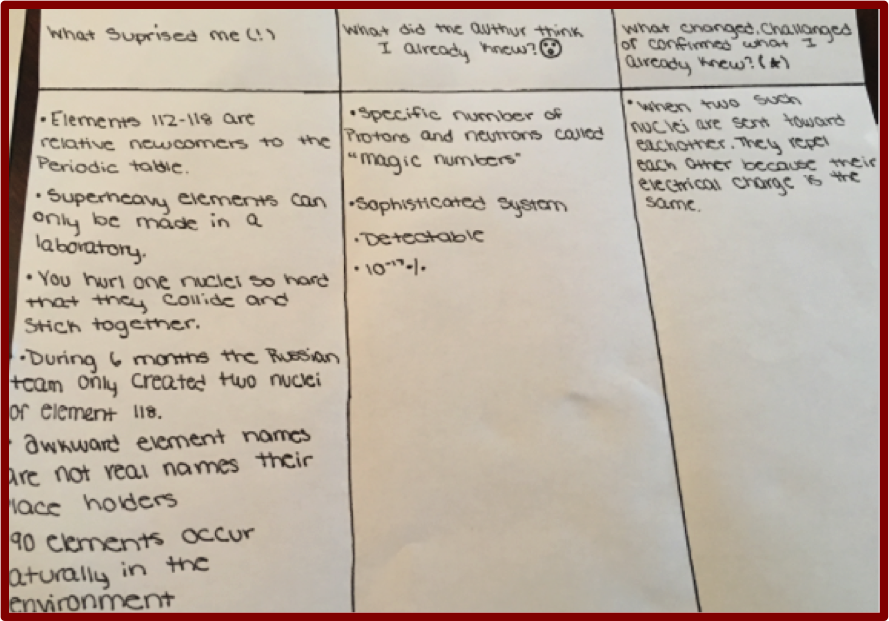 What Suprised me (!)
What did the author think
I already knew? 😮
What changed, Challanged
or confirmed what I
already knew? (★)
• Elements 112-118 are
relative newcomers to the
Periodic table.
• Superheavy elements can
only be made in a
laboratory.
• You hurl one nuclei so hard
that they collide and
Stick together.
• During 6 months the Russian
team only created two nuclei
of element 118.
• awkward element names
are not real names their
lace holders
90 elements occur
aturally in the
environment
• Specific number of
Protons and neutrons called
"magic numbers"
• Sophisticated System
• Detectable
• When two such
nuclei are sent toward
eachother. They repel
each other because their
electrical charge is the
same.